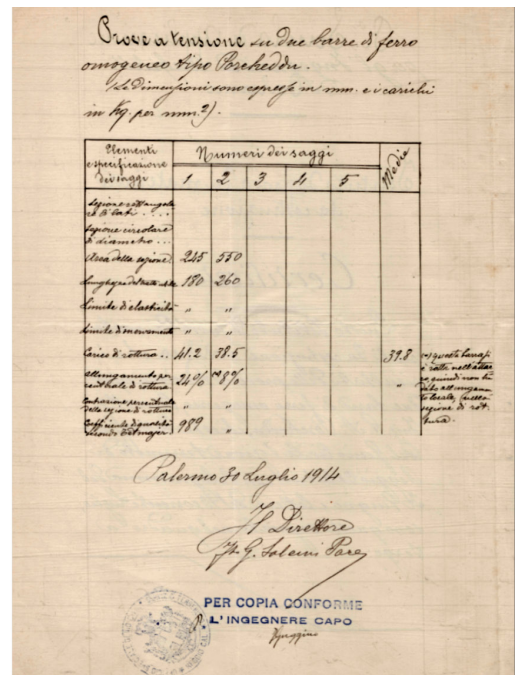 Prove a tensione su due barre di ferro
omogeneo tipo Porcheddu.
(Le dimensioni sono espresse in mm. e i carichi
in Kg. per mm.²).
Elementi e specificazione dei saggi | Numeri dei saggi | Media
1 2 3 4 5
Sezione rettangola
re B lati . . . .
Sezione circolare
di diametro . . .
Area della sezione 245 550
Lunghezza del tratto utile 180 260
Limite d'elasticità " "
Limite di snervamento " "
Carico di rottura . . 41.2 38.5 39.8
Allungamento per
centuale di rottura 24% (*) 8% "
Contrazione percentuale
della sezione di rottura " "
Coefficiente di qualità
secondo Tetmajer. 989 "
(*) questa barra si
è rotta nell'attac
co, quindi non
allungamen
to locale, nella
sezione di rot
tura.
Palermo 30 Luglio 1914
Il Direttore
G. Salemi Pace
PER COPIA CONFORME
p. L'INGEGNERE CAPO